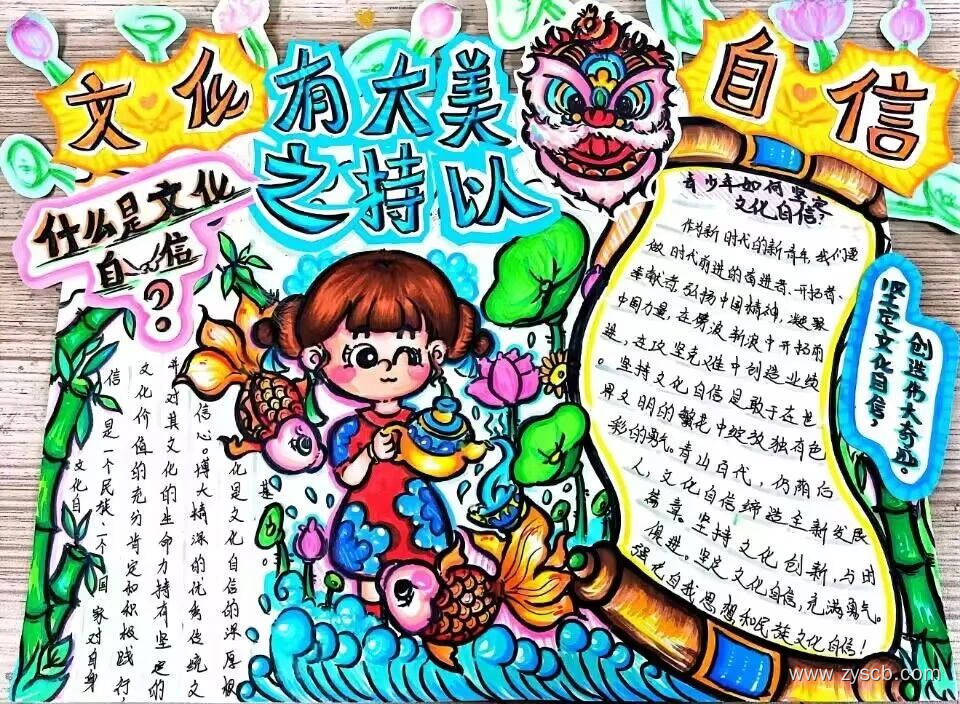 文化
有大美
之持以
自信
什么是文化
自信
?
文化自
信是一个民族、一个国家对自身
文化价值的充分肯定和积极践行,
并对其文化的生命力持有坚定的
信心。博大精深的优秀传统文
化是文化自信的深厚根
基。
青少年如何坚定
文化自信?
作为新时代的新青年,我们要
做时代前进的奋进者、开拓者、
奉献者,弘扬中国精神,凝聚
中国力量,在劈波斩浪中开拓前
进,在攻坚克难中创造业绩
。坚持文化自信是敢于在世
界文明的繁花中绽放独有色
彩的勇气。青山百代,仍荫后
人,文化自信缔造全新发展
篇章。坚持文化创新,与时
俱进。坚定文化自信,充满勇气。
强化自我思想和民族文化自信!
坚定文化自信,
创造伟大奇迹。
www.zyscb.com